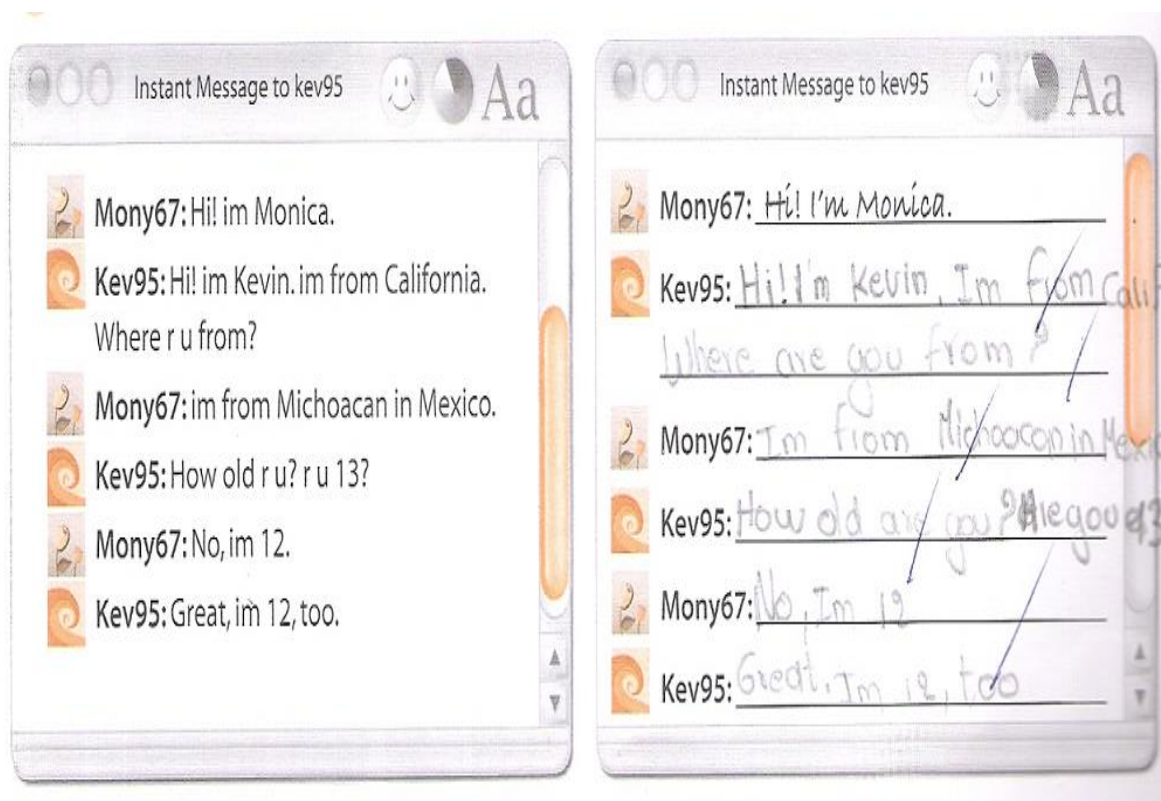 Instant Message to kev95
Mony67: Hi! im Monica.
Kev95: Hi! im Kevin. im from California.
Where r u from?
Mony67: im from Michoacan in Mexico.
Kev95: How old r u? r u 13?
Mony67: No, im 12.
Kev95: Great, im 12, too.
Instant Message to kev95
Mony67: Hi! I'm Monica.
Kev95: Hi! I'm Kevin, Im from Calif
Where are you from?
Mony67: Im from Michoacan in Mexic
Kev95: How old are you? Are you 13
Mony67: No, Im 12
Kev95: Great, Im 12, too